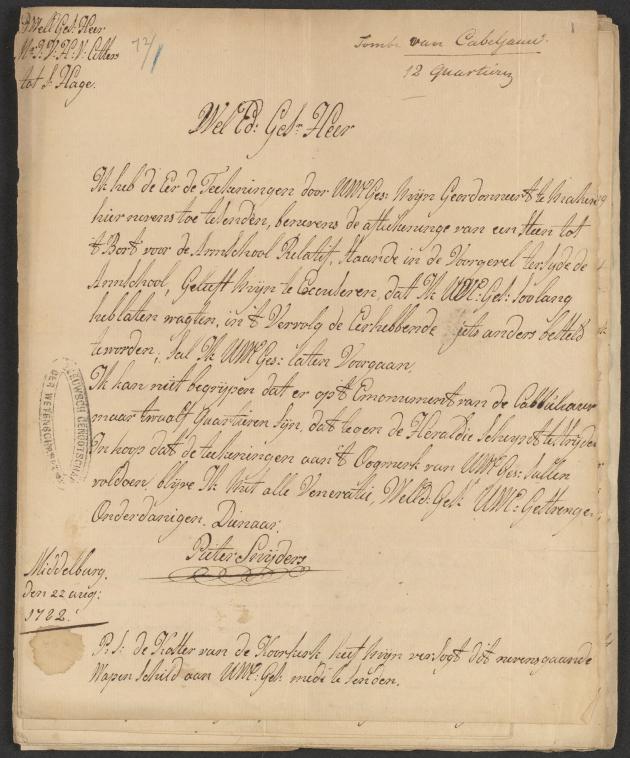 Well Gest: Heer
Mr. P. H. V. Citters
tot S: Hage.
72/1
Tombe van Cabeljauw.
12 quartieren
1
Wel Ed: Gest. Heer
Ik heb de Eer de Teekeningen door UWE: Ges: Mijn Geordonneert te Maken
hier nevens toe te senden, benevens de aftekeninge van een Steen tot
't Bort voor de Armschool Relatif, Staande in de Voorgevel ter Syde de
Armschool, Gelieft Mijn te Excuseren, dat Ik UWE: Ges: soo lang
heb laten wagten, in 't Vervolg de Eer hebbende iets anders bestelt
te worden, Sal Ik UWE: Ges: laten Voorgaan.
Ik kan niet begrijpen dat er op 't Emonument van de Cabbeljauw
maar twaalf Quartieren Sijn, dat tegen de Heraldie Scheynt te strijden
In hoop dat de teekeningen aan 't Oogmerk van UWE: Ges: Sullen
voldoen blyve Ik Mit alle Veneratie, WelEd: Ges: UWE: Gestrengen
Onderdanigen Dienaar.
Pieter Snyders
Middelburg.
den 22 aug:
1782.
ZEEUWSCH GENOOTSCHAP
DER WETENSCHAPPEN
P: S: de Koster van de Koorkerk heeft Mijn versogt dit nevensgaande
Wapen Schild aan UWE: Ges: mede te senden.